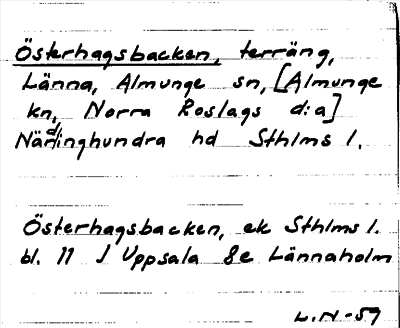 Österhagsbacken, terräng,
Länna, Almunge sn, [Almunge
kn, Norra Roslags d:a]
Närdinghundra hd Sthlms l.
Österhagsbacken, ek Sthlms l.
bl. 11 J Uppsala 8e Lännaholm
L.N-57